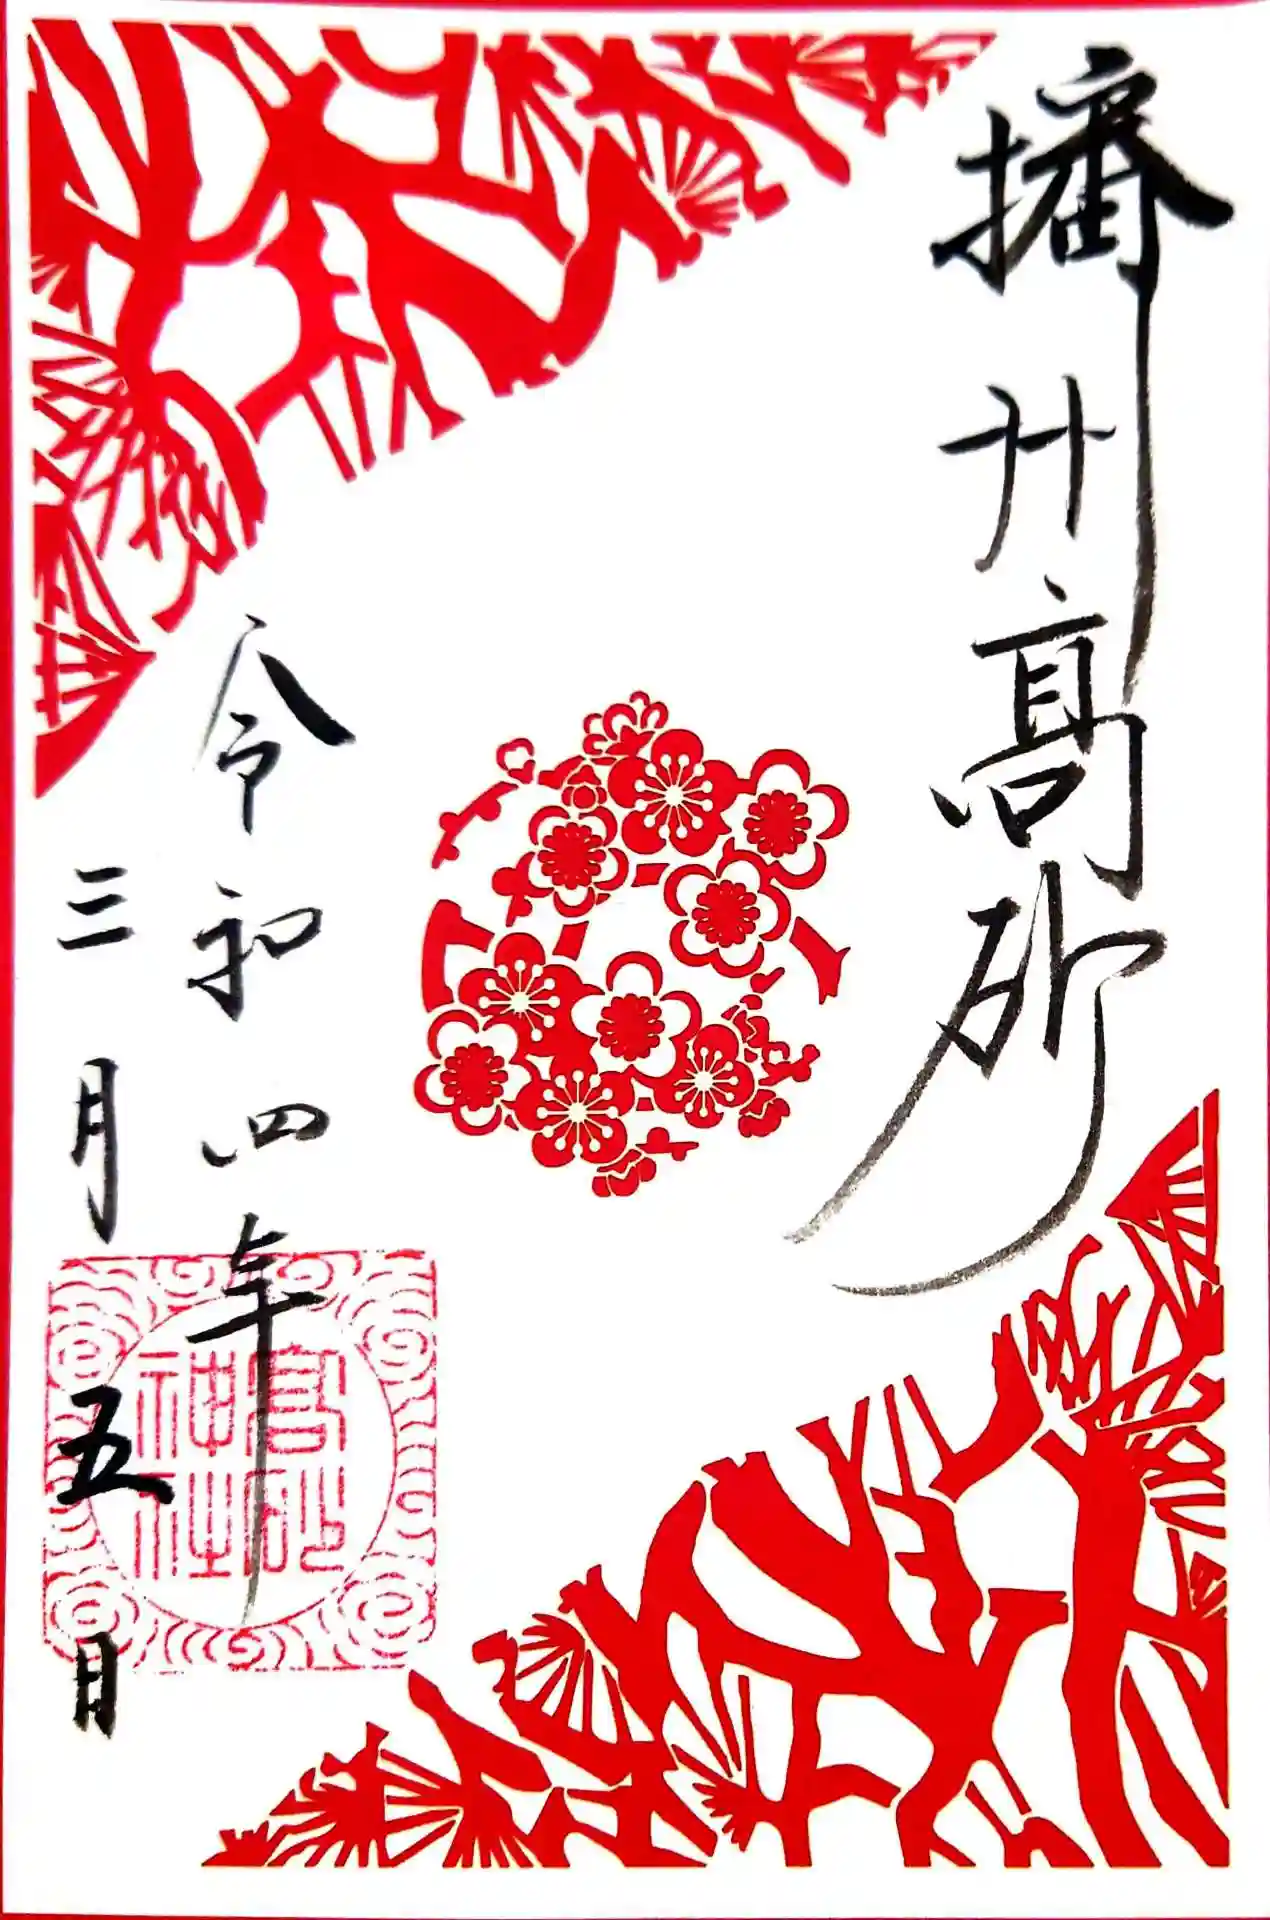 播州髙砂
令和四年
三月五日
高砂
神社